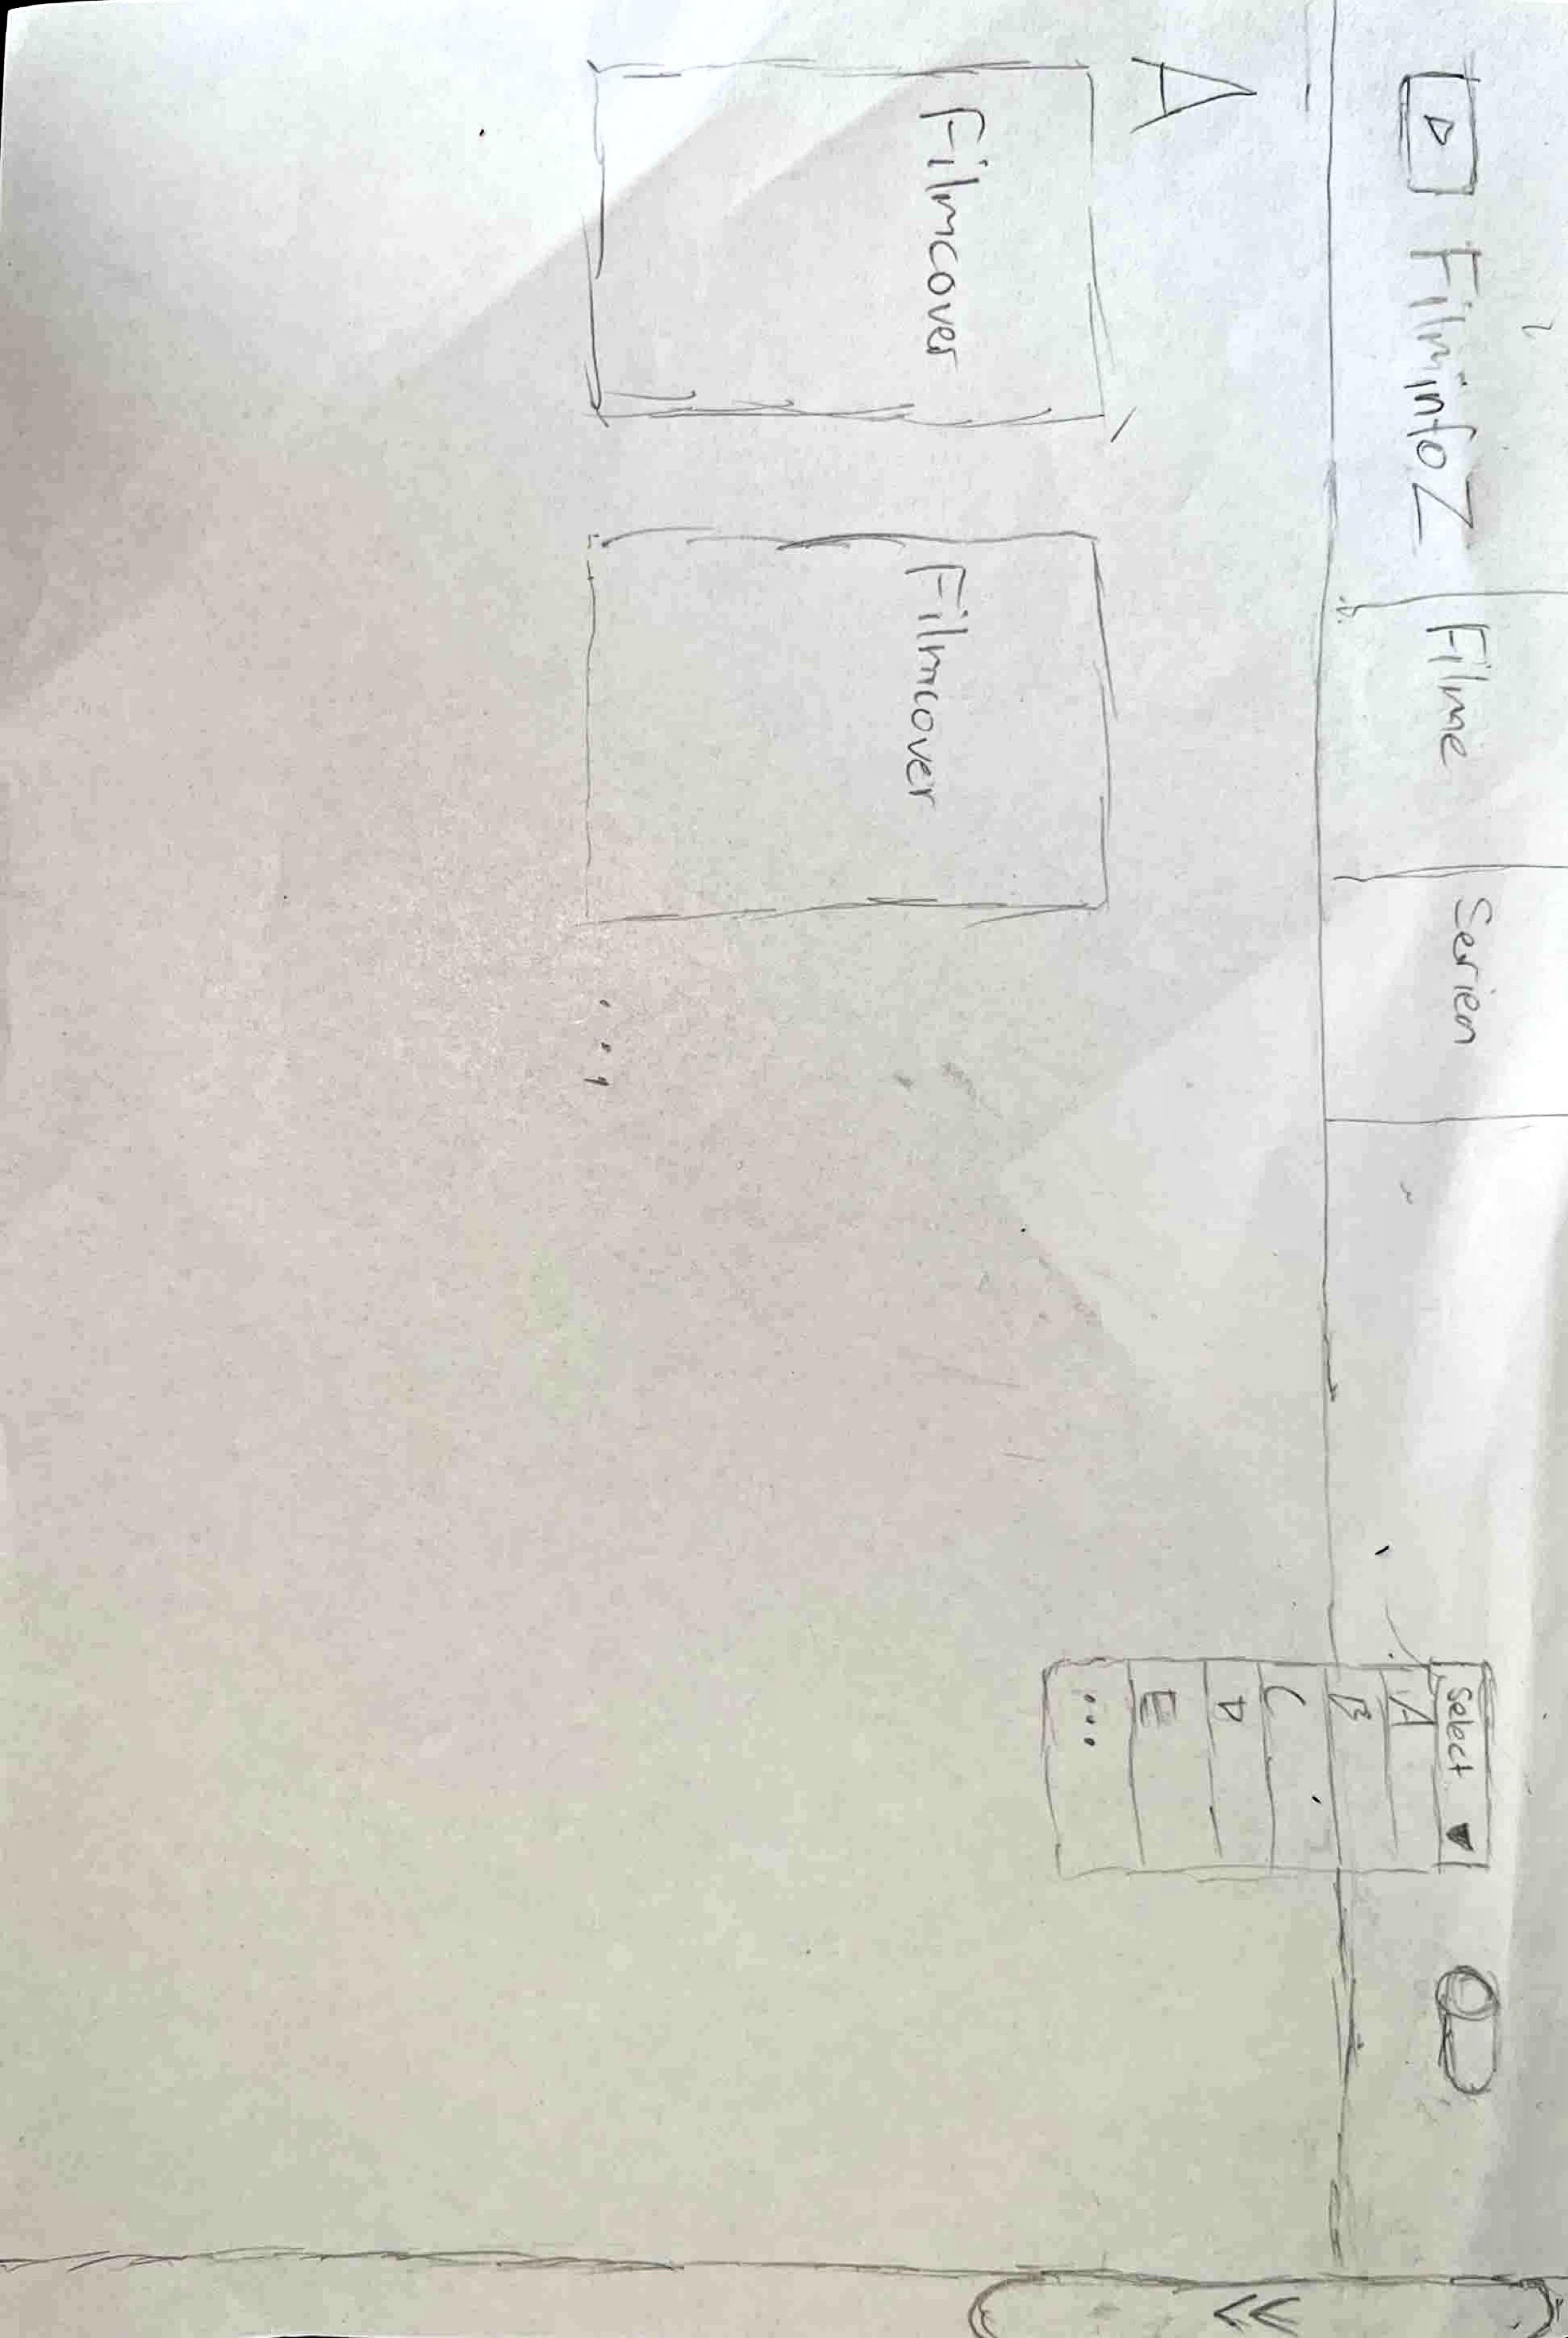 FilminfoZ Filme Serien
Select
A
B
C
D
E
...
A
Filmcover Filmcover
...